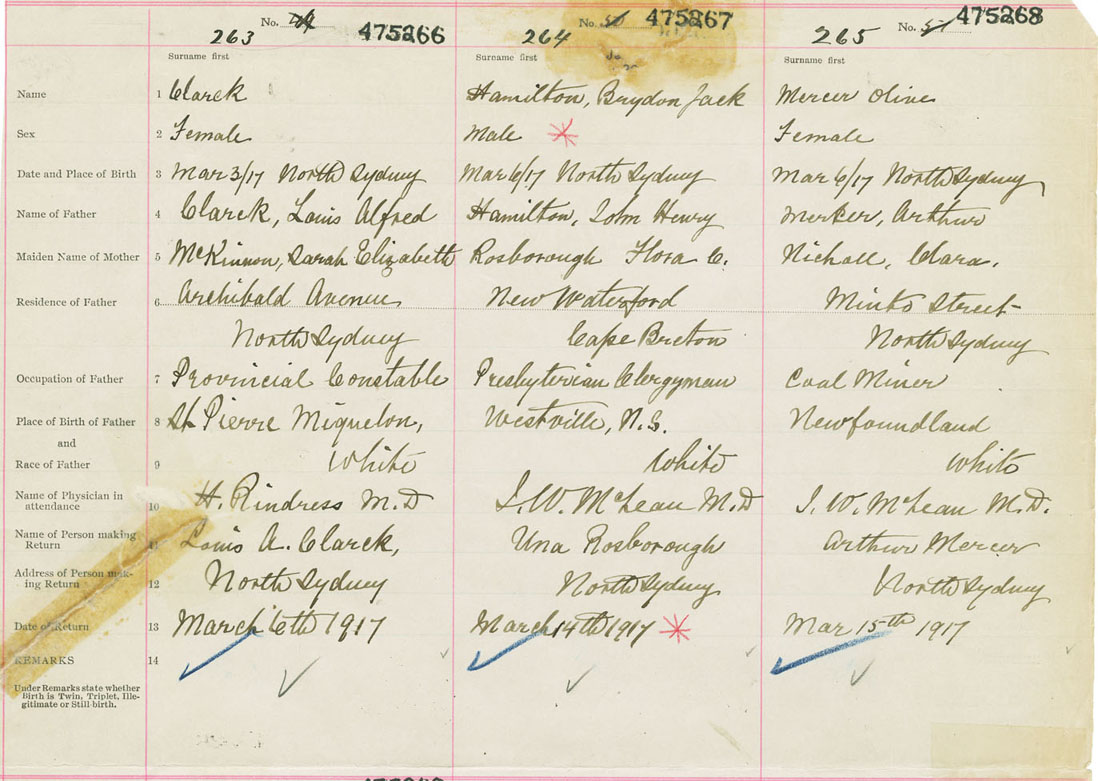 No. 475266 No. 50 475267 No. 51 475268
263 264 265
Surname first Surname first Surname first
Name 1 Clarck Hamilton, Brydon Jack Mercer Olive
Sex 2 Female Male Female
Date and Place of Birth 3 Mar 3/17 North Sydney Mar 6/17 North Sydney Mar 6/17 North Sydney
Name of Father 4 Clarck, Louis Alfred Hamilton, John Henry Mercer, Arthur
Maiden Name of Mother 5 McKinnon, Sarah Elizabeth Rosborough Flora C. Nicholl, Clara.
Residence of Father 6 Archibald Avenue New Waterford Minto Street
North Sydney Cape Breton North Sydney
Occupation of Father 7 Provincial Constable Presbyterian Clergyman Coal Miner
Place of Birth of Father 8 St Pierre Miquelon, Westville, N.S. Newfoundland
and
Race of Father 9 White White White
Name of Physician in
attendance 10 H. Rindress M.D J. W. McLean M.D J. W. McLean M.D.
Name of Person making
Return 11 Louis A. Clarck, Una Rosborough Arthur Mercer
Address of Person mak-
ing Return 12 North Sydney North Sydney North Sydney
Date of Return 13 March 16th 1917 March 14th 1917 Mar 15th 1917
REMARKS 14
Under Remarks state whether
Birth is Twin, Triplet, Ille-
gitimate or Still-birth.